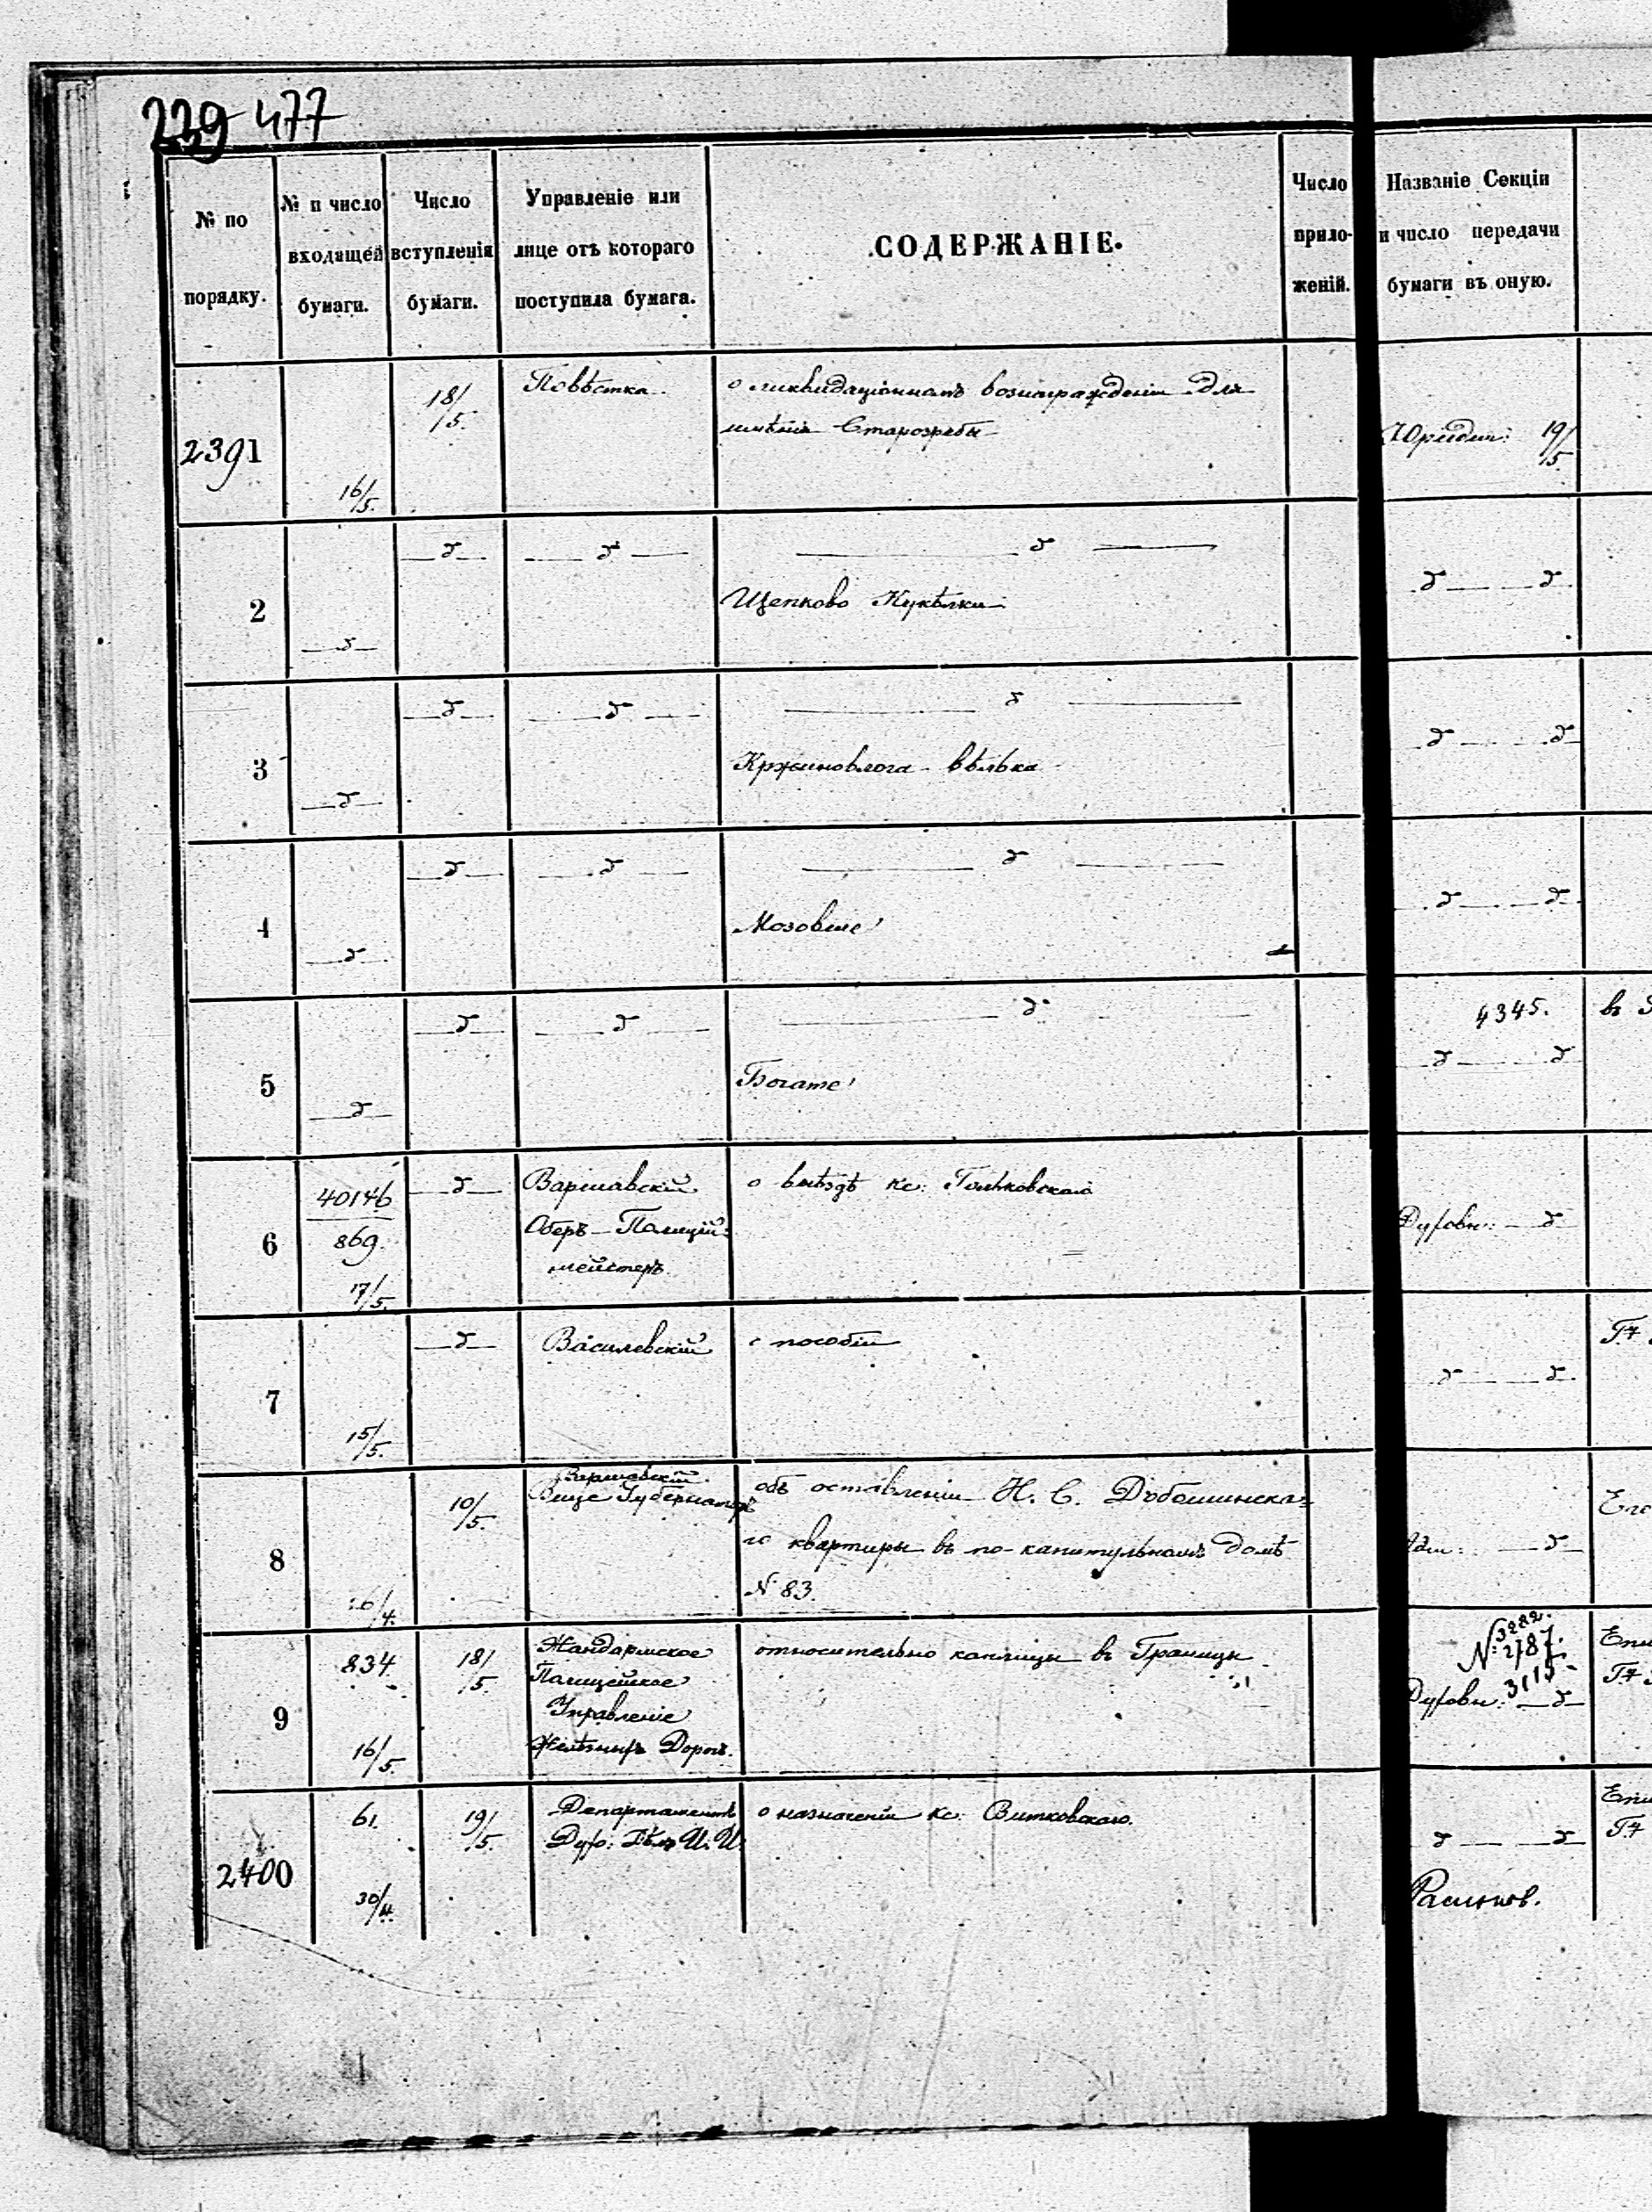 229 477
№ по
порядку.
№ и число
входящей
бумаги.
Число
вступленія
бумаги.
Управленіе или
лице отъ котораго
поступила бумага.
СОДЕРЖАНІЕ.
Число
прило-
женій.
Названіе Секціи
и число передачи
бумаги въ оную.
2391
16/5.
18/5.
Повѣстка
о ликвидаціонномъ вознагражденіи для
имѣнія Старозребы
Юридич: 19/5
2
Щепково
3
Кржиновлога вѣлька
4
5
Богате
4345.
6
40146
869.
17/5.
Варшавскій
Оберъ-Полицій-
мейстеръ
о выѣздѣ кс:
Духовн:
7
15/5.
Василевскій
о пособіи
8
10/5.
Варшавскій
Вице Губернаторъ
объ оставленіи Н. С.
го квартиры въ по-капитульномъ домѣ
№ 83.
Адм:
9
834
16/5.
18/5.
Жандармское
Полицейское
Управленіе
Желѣзныхъ Дорогъ.
относительно каплицы въ Границы
3282.
№ 2787.
3115
Духовн:
2400
61.
30/4.
19/5.
Департаментъ
Дух: Дѣлъ И. И.
о назначеніи кс: Витковскаго.